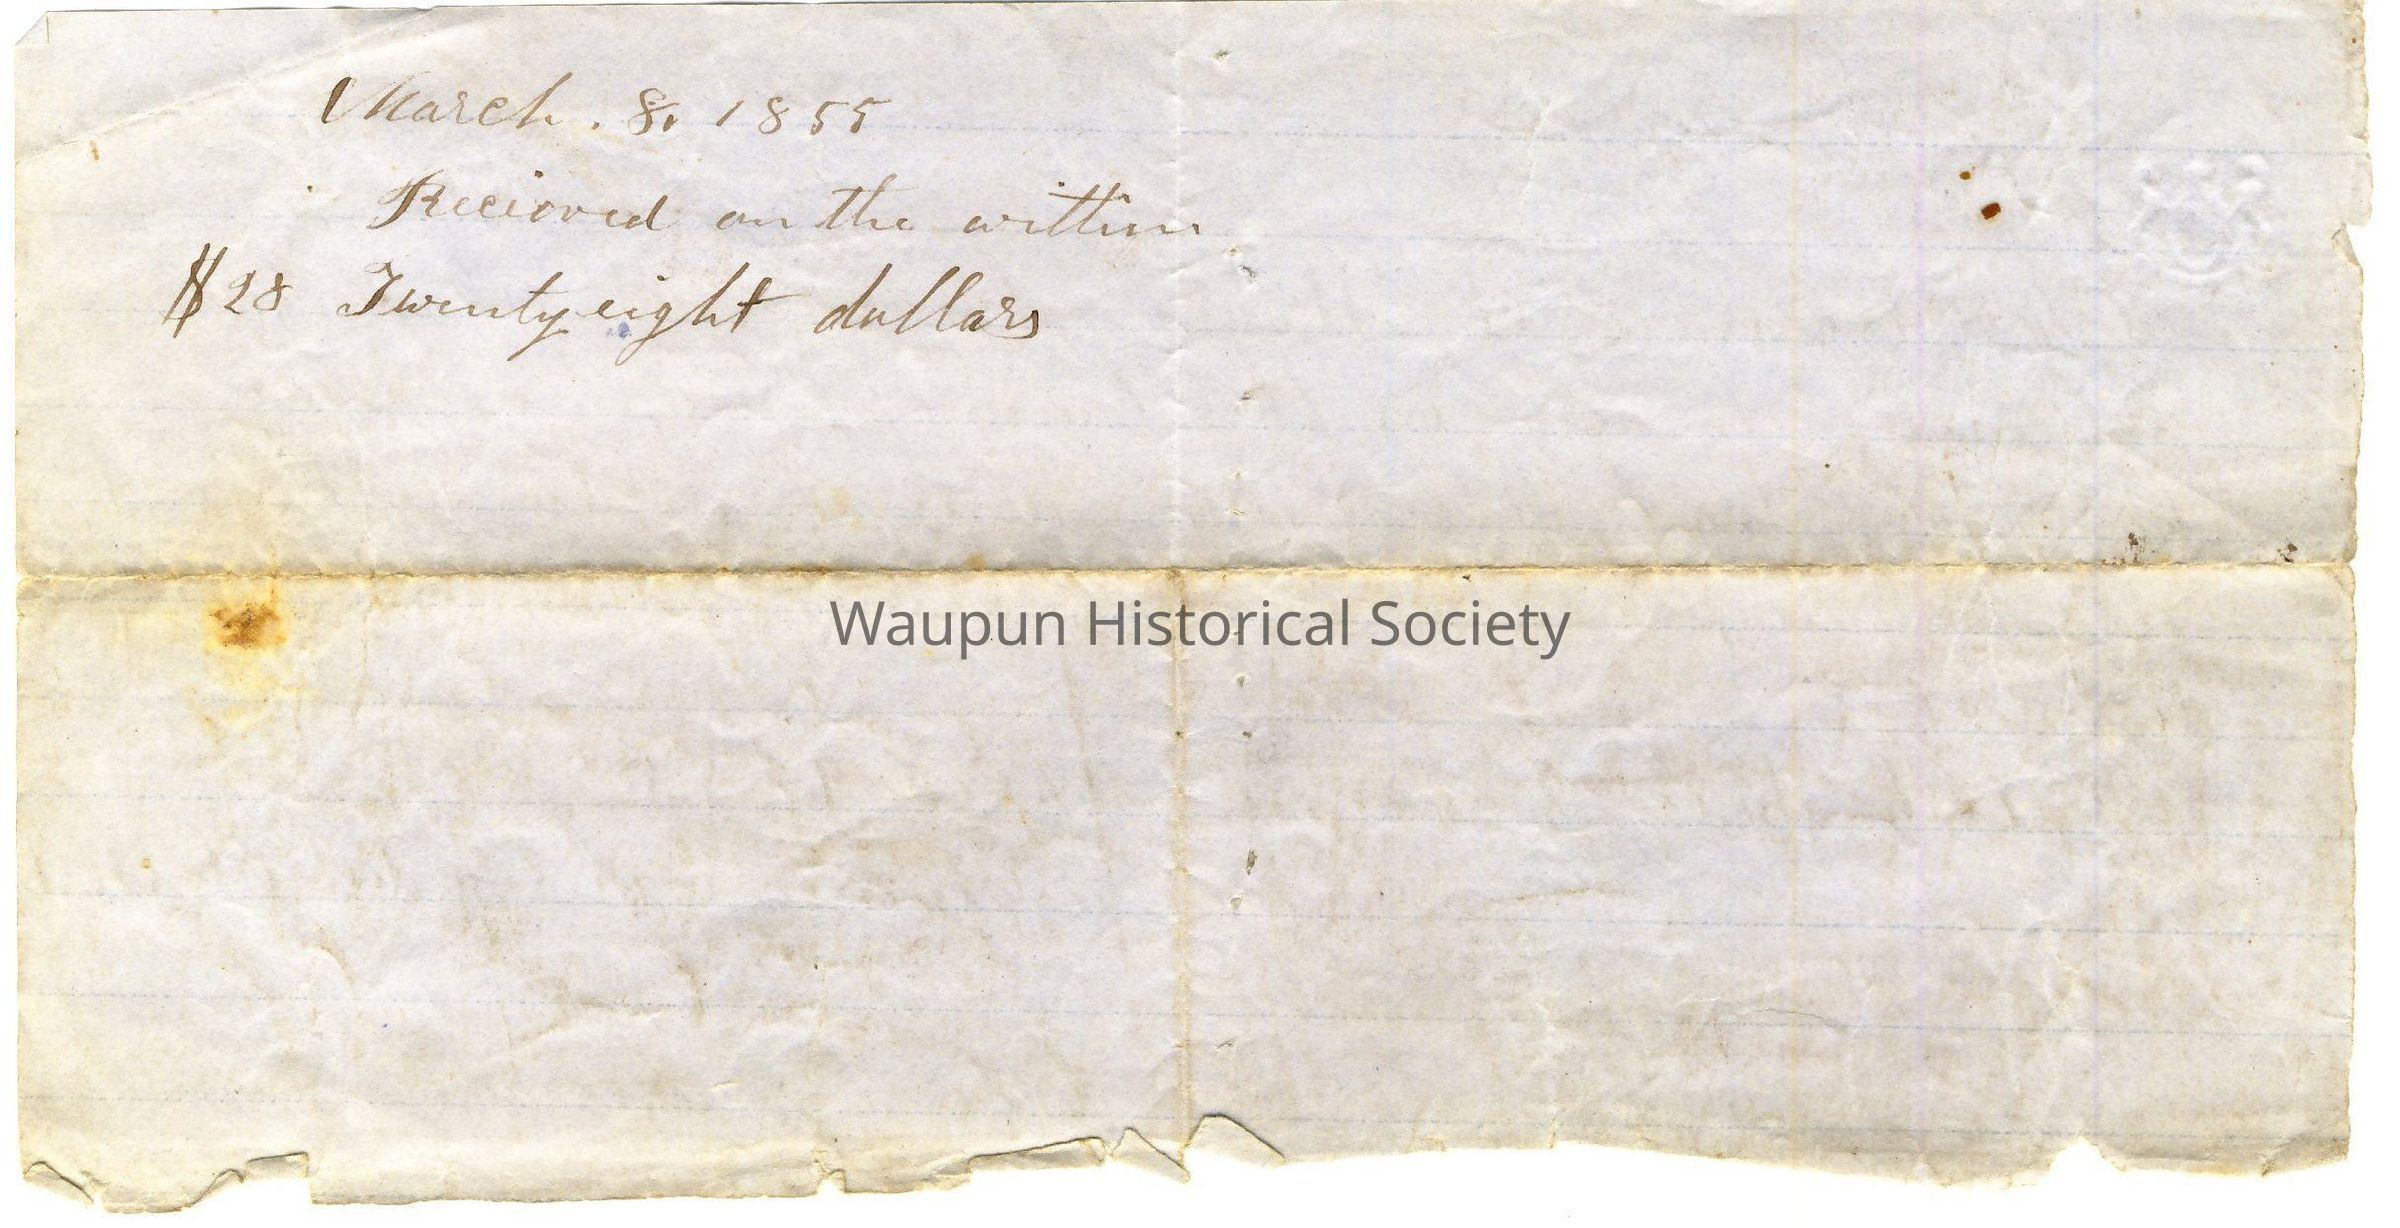 March. 8, 1855
Recieved on the within
$28 Twenty eight dollars
Waupun Historical Society